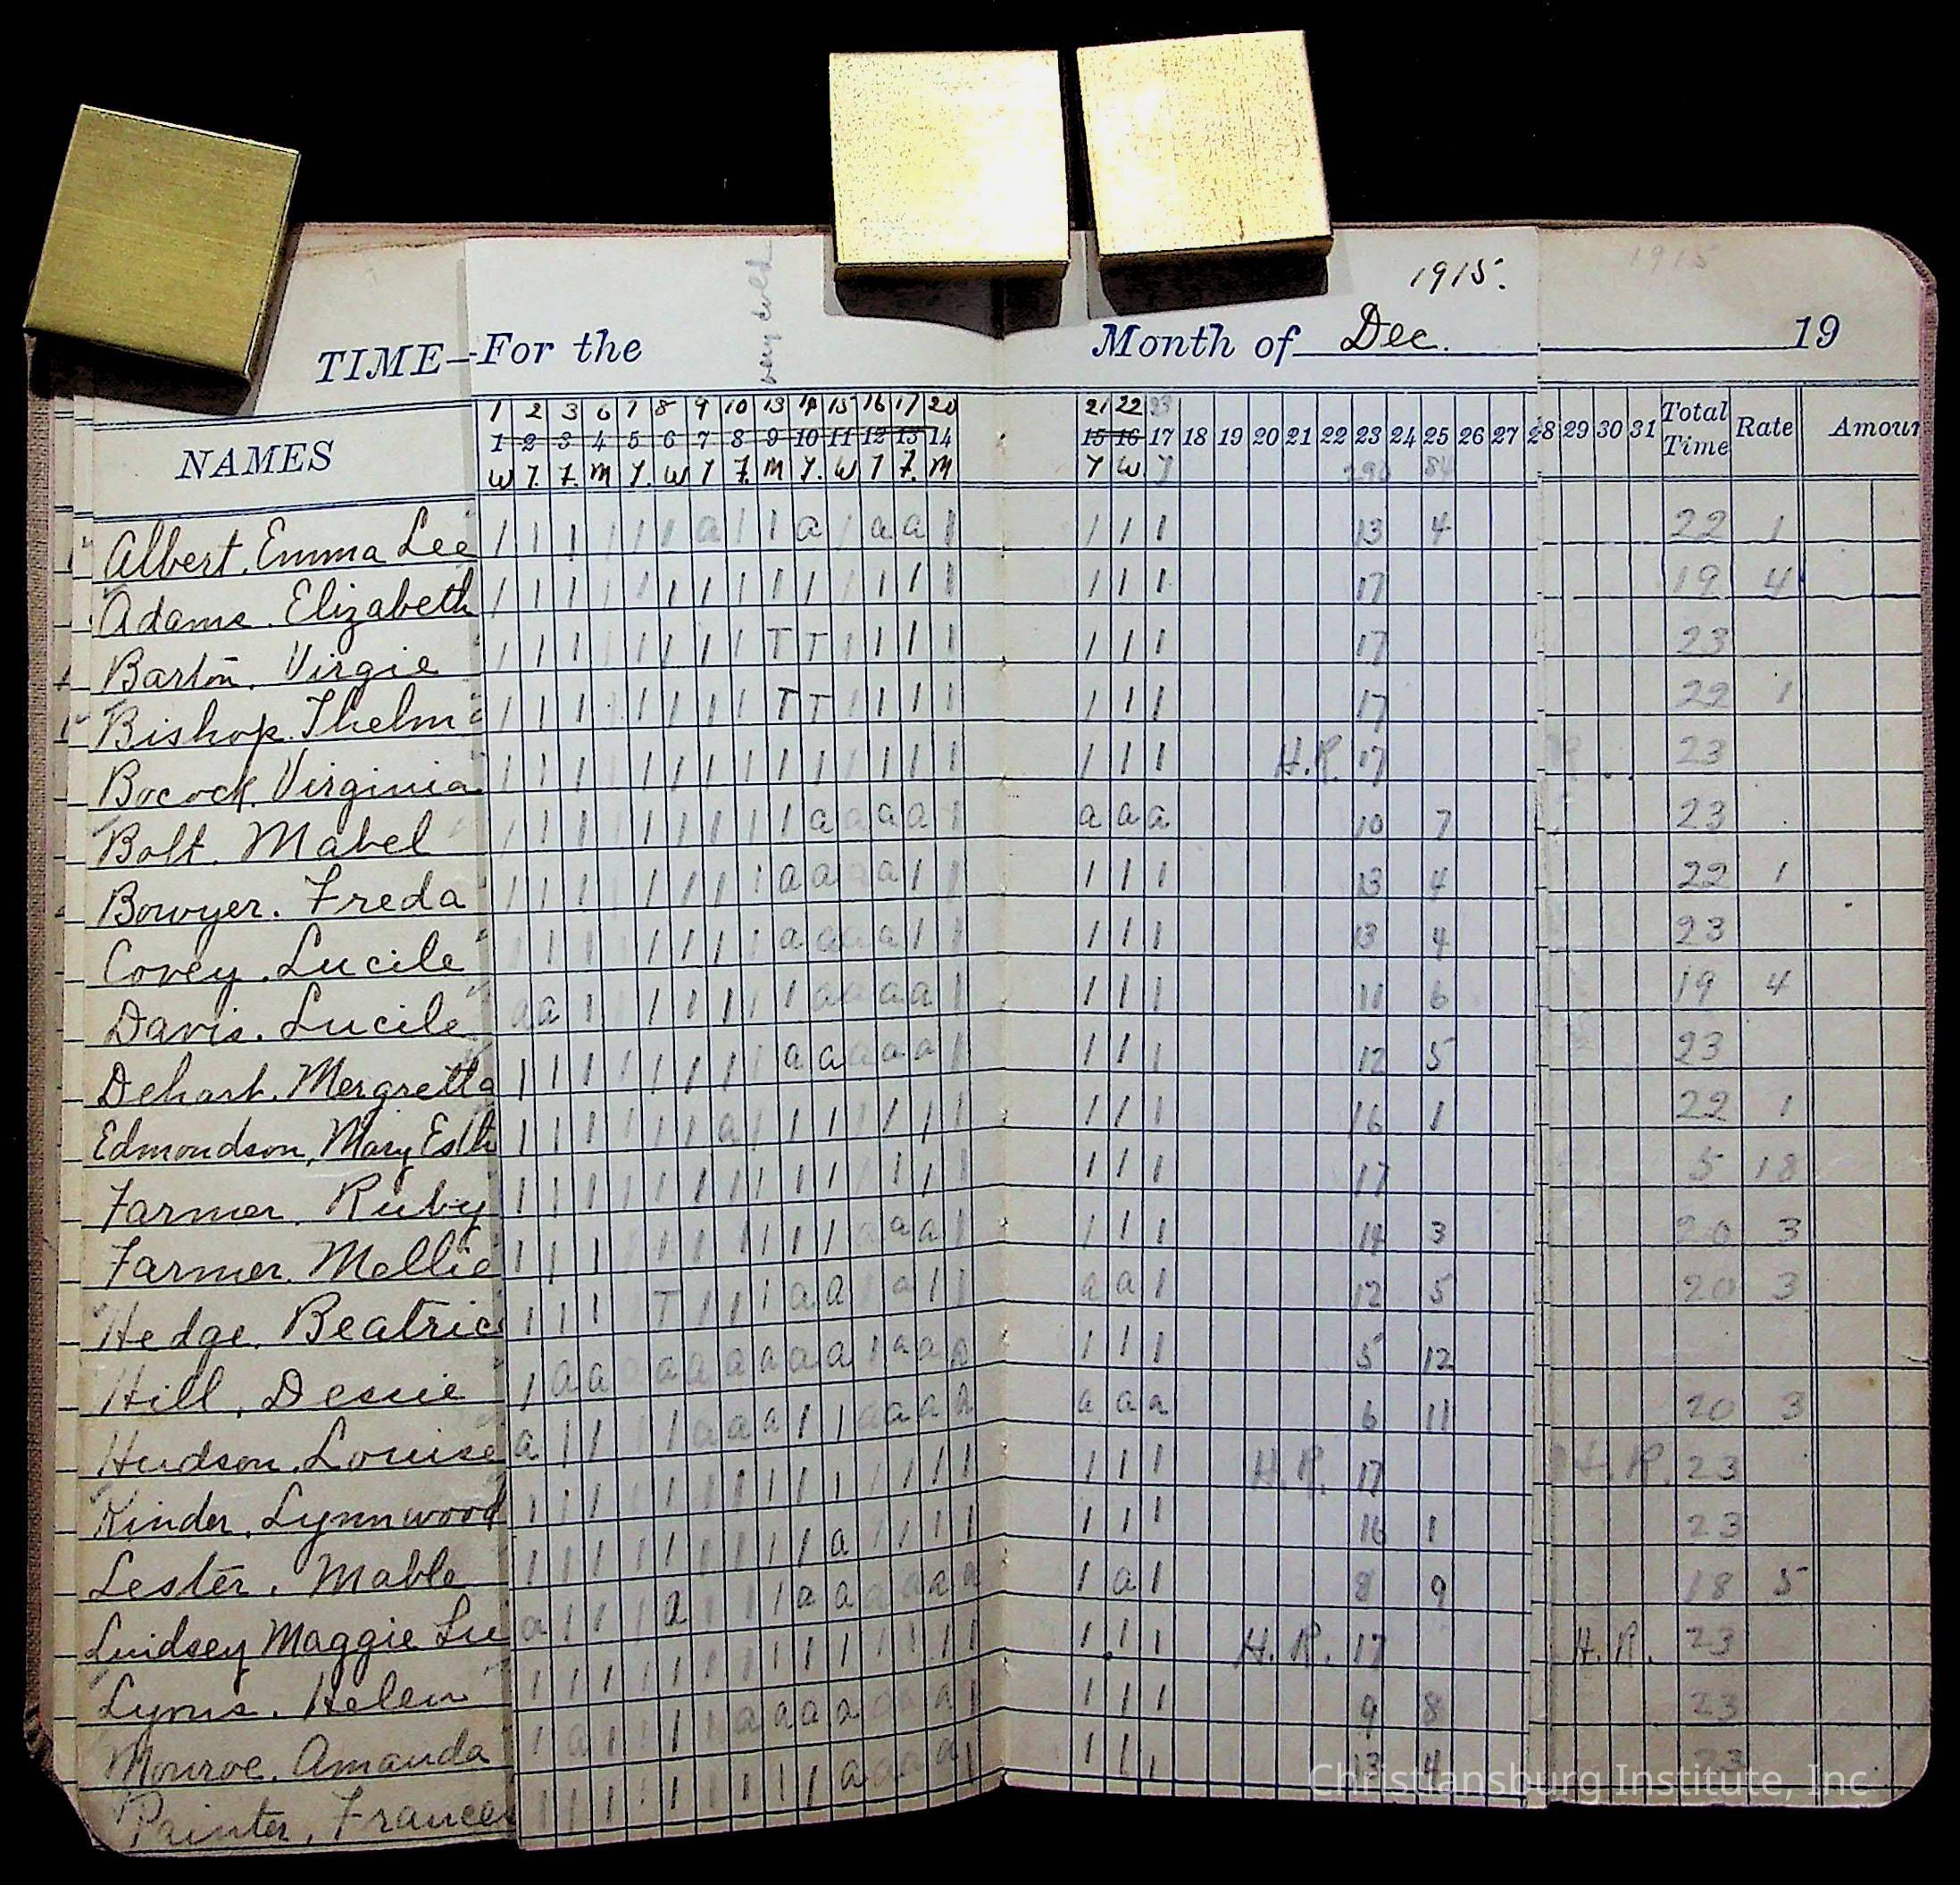 very cold
1915.
1915
TIME—For the Month of Dec. 19
1 2 3 6 7 8 9 10 13 14 15 16 17 20 21 22 23
NAMES 1 2 3 4 5 6 7 8 9 10 11 12 13 14 15 16 17 18 19 20 21 22 23 24 25 26 27 28 29 30 31 Total Time Rate Amour
W T. F. M T. W T F. M T. W T F. M T W T 290 84
Albert, Emma Lee 1 1 1 1 1 1 a 1 1 a 1 a a 1 1 1 1 13 4 22 1
Adams, Elizabeth 1 1 1 1 1 1 1 1 1 1 1 1 1 1 1 1 1 17 19 4
Barton, Virgie 1 1 1 1 1 1 1 1 T T 1 1 1 1 1 1 1 17 23
Bishop, Thelm 1 1 1 1 1 1 1 1 T T 1 1 1 1 1 1 1 17 22 1
Bocock, Virginia 1 1 1 1 1 1 1 1 1 1 1 1 1 1 1 1 1 H.R. 17 R 23
Bolt, Mabel 1 1 1 1 1 1 1 1 1 a a a a 1 a a a 10 7 23
Bowyer, Freda 1 1 1 1 1 1 1 1 a a a a 1 1 1 1 1 13 4 22 1
Covey, Lucile 1 1 1 1 1 1 1 1 a a a a 1 1 1 1 1 13 4 23
Davis, Lucile a a 1 1 1 1 1 1 1 a a a a 1 1 1 1 11 6 19 4
Dehart, Mergretta 1 1 1 1 1 1 1 1 a a a a a 1 1 1 1 12 5 23
Edmondson, Mary Esth 1 1 1 1 1 1 a 1 1 1 1 1 1 1 1 1 1 16 1 22 1
Farmer, Ruby 1 1 1 1 1 1 1 1 1 1 1 1 1 1 1 1 1 17 5 18
Farmer, Mollie 1 1 1 1 1 1 1 1 1 1 a a a 1 1 1 1 14 3 20 3
Hedge, Beatric 1 1 1 1 T 1 1 1 a a 1 a 1 1 a a 1 12 5 20 3
Hill, Dessie 1 a a a a a a a a a 1 a a a 1 1 1 5 12
Hudson, Louise a 1 1 1 1 a a a 1 1 a a a a a a a 6 11 20 3
Kinder, Lynnwood 1 1 1 1 1 1 1 1 1 1 1 1 1 1 1 1 1 H.R. 17 H.R. 23
Lester, Mable 1 1 1 1 1 1 1 1 1 a 1 1 1 1 1 1 1 16 1 23
Lindsey Maggie Lu a 1 1 1 a 1 1 1 a a a a a a 1 a 1 8 9 18 5
Lyons, Helen 1 1 1 1 1 1 1 1 1 1 1 1 1 1 1 1 1 H.R. 17 H.R. 23
Monroe, Amanda 1 a 1 1 1 1 a a a a a a a 1 1 1 1 9 8 23
Painter, Frances 1 1 1 1 1 1 1 1 1 a a a a 1 1 1 1 13 4 23
Christiansburg Institute, Inc